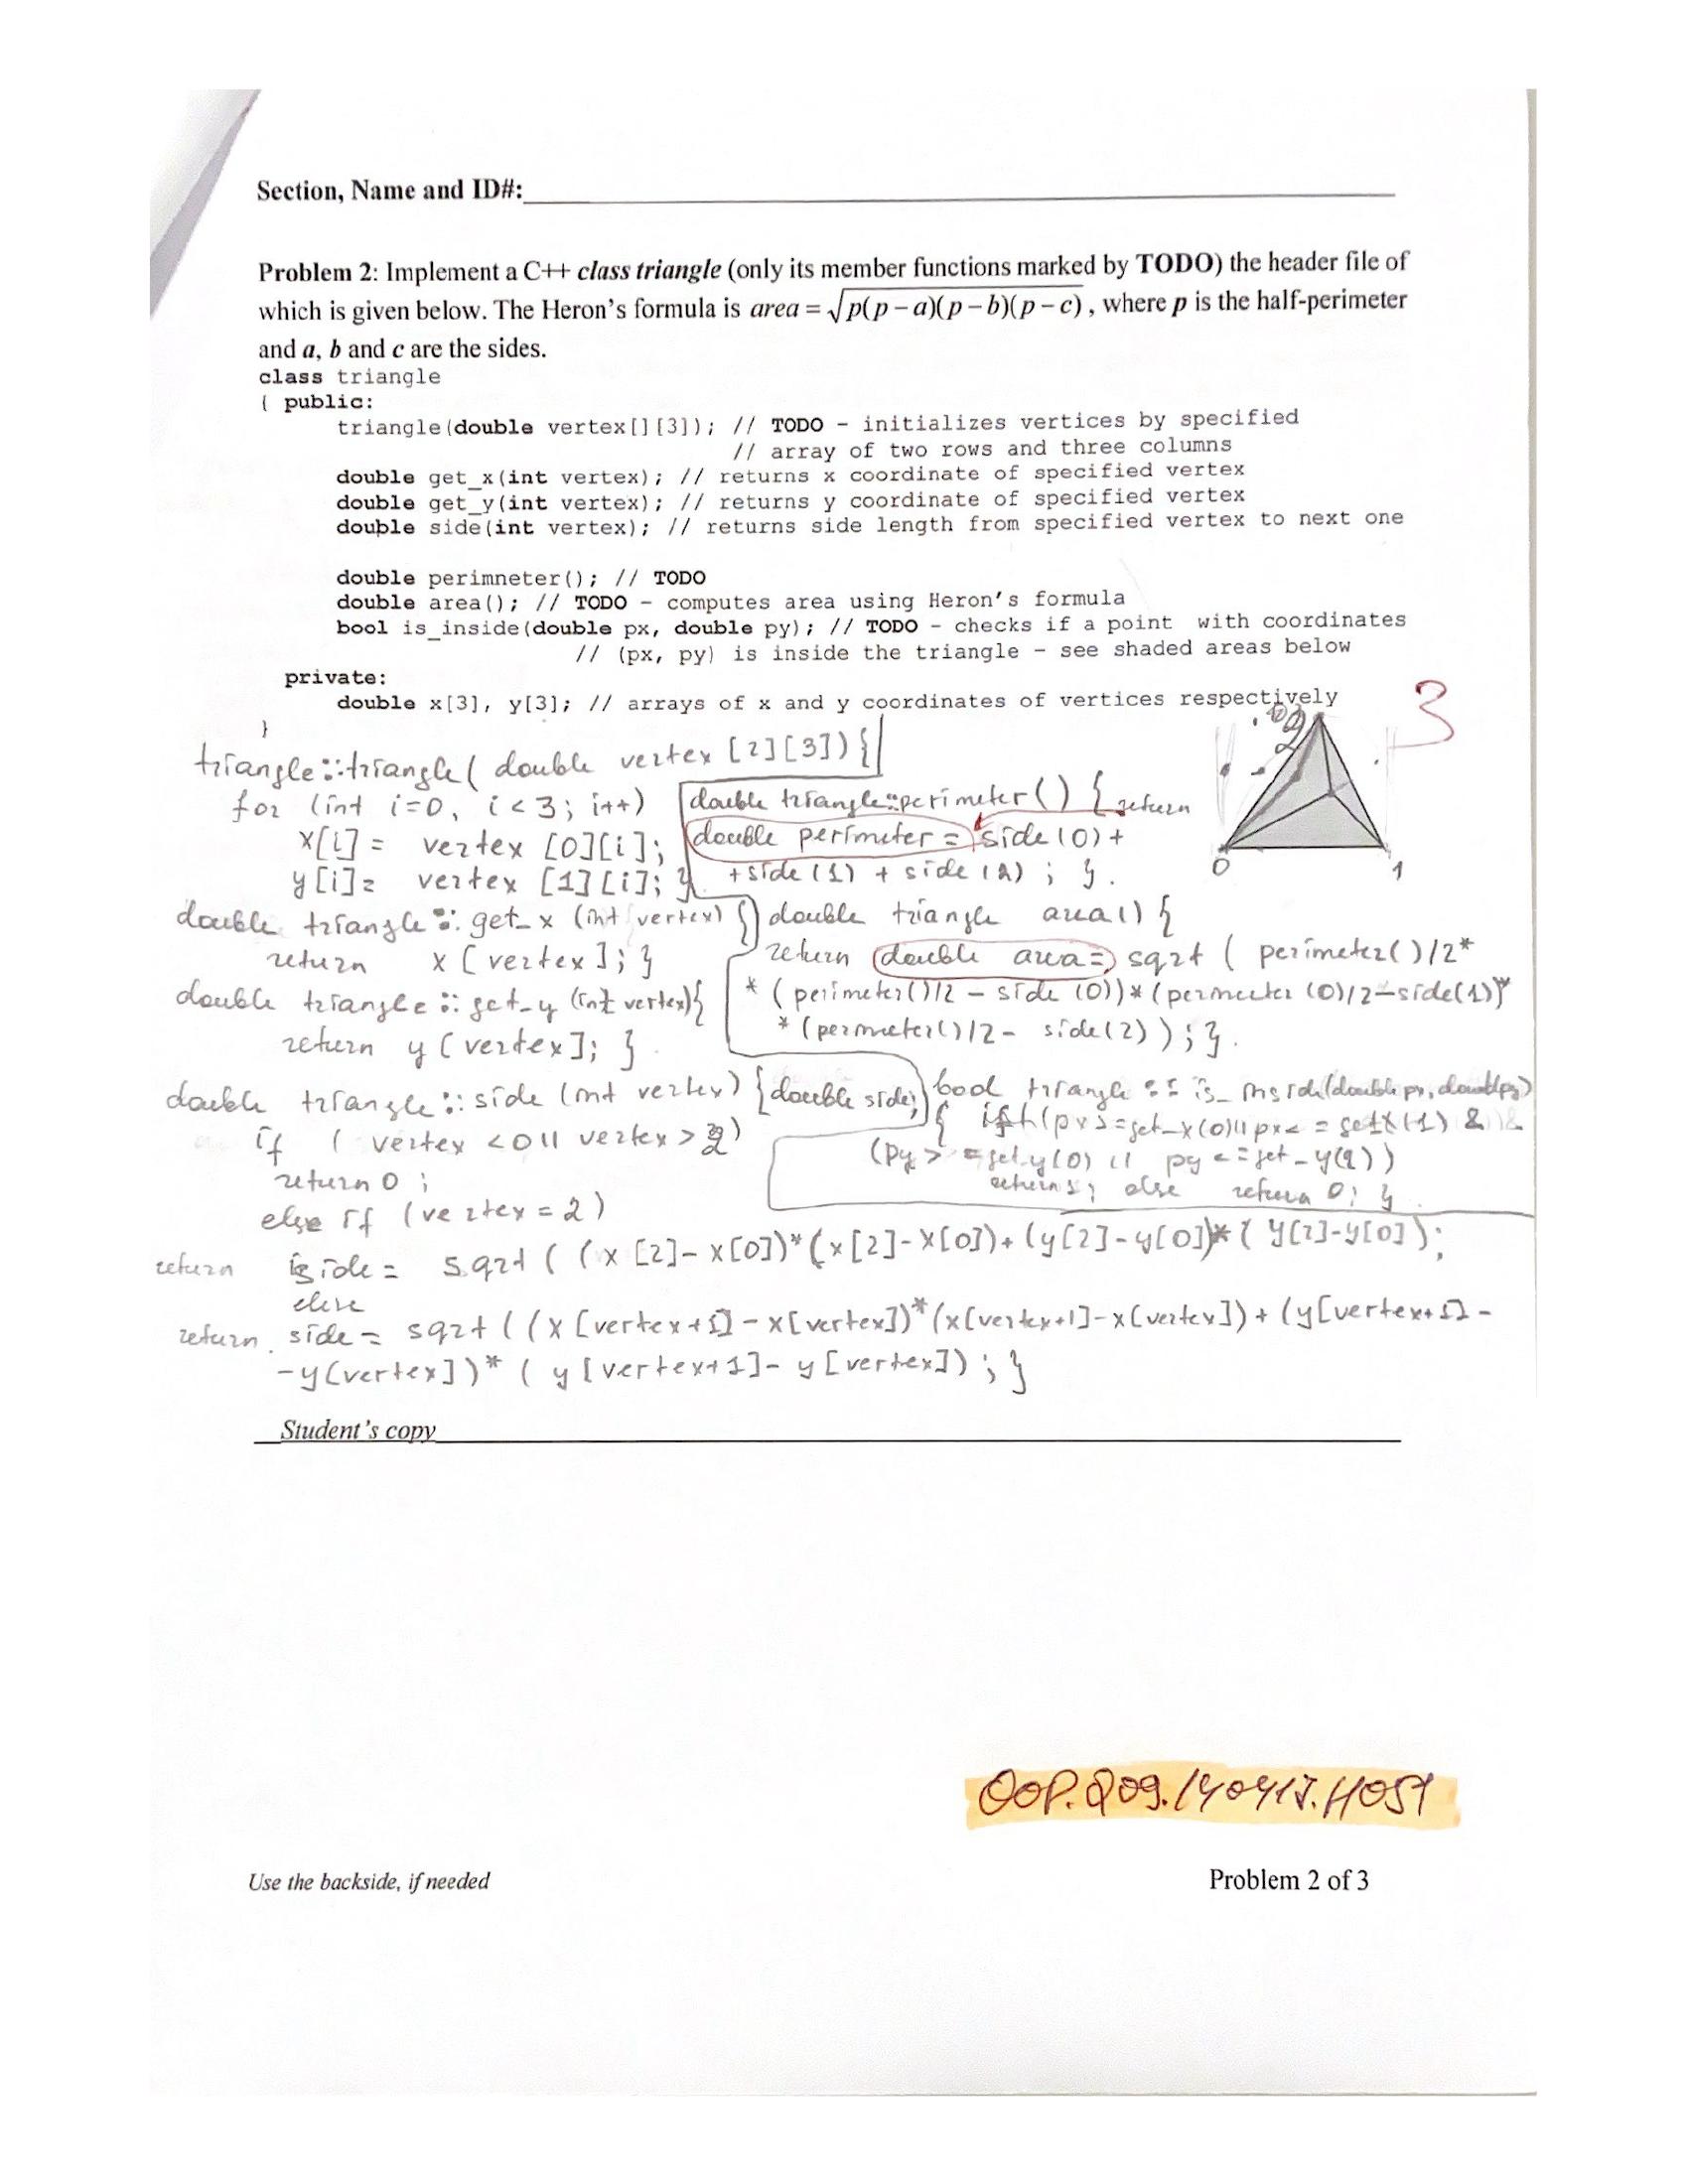 Section, Name and ID#:
Problem 2: Implement a C++ class triangle (only its member functions marked by TODO) the header file of
which is given below. The Heron's formula is area = √p(p – a)(p – b)(p – c) , where p is the half-perimeter
and a, b and c are the sides.
class triangle
{ public:
triangle(double vertex[][3]); // TODO - initializes vertices by specified
// array of two rows and three columns
double get_x(int vertex); // returns x coordinate of specified vertex
double get_y(int vertex); // returns y coordinate of specified vertex
double side(int vertex); // returns side length from specified vertex to next one
double perimneter(); // TODO
double area(); // TODO - computes area using Heron's formula
bool is_inside(double px, double py); // TODO - checks if a point with coordinates
// (px, py) is inside the triangle - see shaded areas below
private:
double x[3], y[3]; // arrays of x and y coordinates of vertices respectively
}
3
2
0
1
triangle::triangle( double vertex [2][3]) {
for (int i=0, i<3; i++)
x[i] = vertex [0][i];
y[i]= vertex [1][i]; }
double triangle::perimeter() { return
double perimeter = side(0) +
+side(1) + side(2) ; }.
double triangle :: get_x (int vertex) {
return x[vertex]; }
double triangle :: get_y (int vertex){
return y[vertex]; }
double triangle area() {
return double area = sqrt ( perimeter()/2*
* (perimeter()/2 - side (0))* (perimeter (0)/2-side(1))*
* (permeter()/2- side(2) ) ; }.
double triangle :: side (int vertex) {double side;
if ( vertex <0 || vertex > 2)
return 0 ;
else if (vertex = 2)
return side = sqrt ( (x [2]- x[0])*(x[2]-x[0])+ (y[2]-y[0])* ( y[2]-y[0] );
else
return side = sqrt ((x [vertex+1]-x[vertex])*(x[vertex+1]-x[vertex])+ (y[vertex+1]-
-y[vertex])* ( y [vertex+1]- y [vertex]) ; }
bool triangle :: is_inside(double px, double py)
{ if (px>=get_x(0)||px<=get_x(1) &&
(py>=get_y(0) || py<=get_y(2))
return 1; else return 0; }
Student's copy
OOP.Q09.140417.H051
Use the backside, if needed
Problem 2 of 3